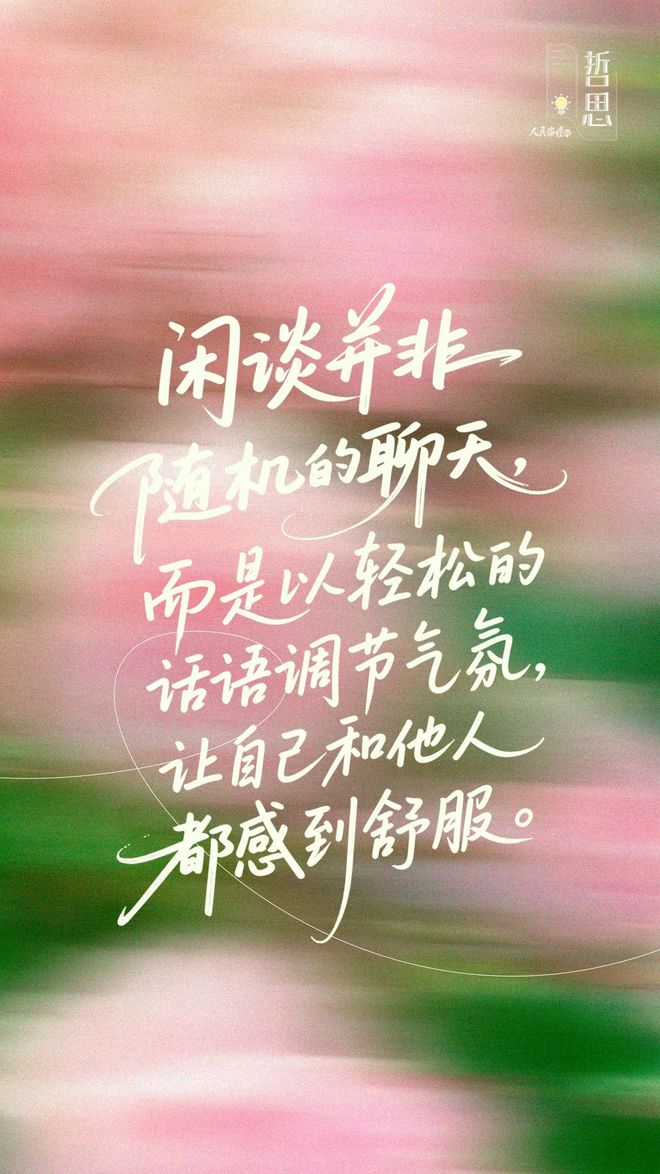 哲思
闲谈并非
随机的聊天，
而是以轻松的
话语调节气氛，
让自己和他人
都感到舒服。